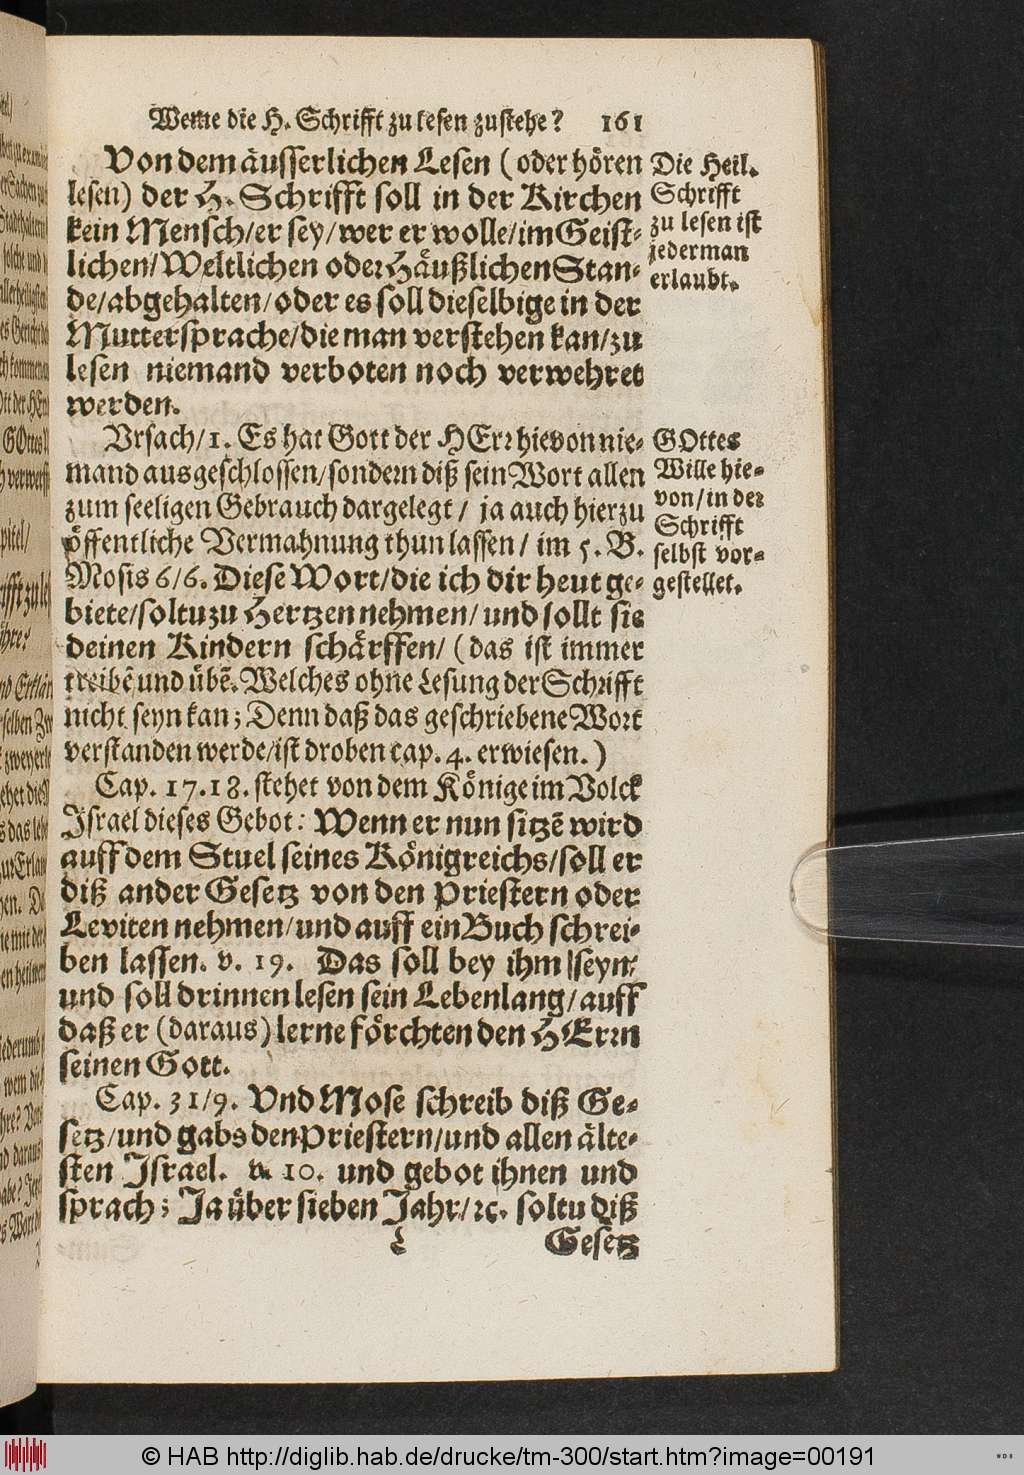 Weme die H. Schrifft zu lesen zustehe? 161
Von dem äusserlichen Lesen (oder hören
lesen) der H. Schrifft soll in der Kirchen
kein Mensch/er sey/wer er wolle/im Geist-
lichen/Weltlichen oder Häußlichen Stan-
de/abgehalten/oder es soll dieselbige in der
Muttersprache/die man verstehen kan/zu
lesen niemand verboten noch verwehret
werden.
Die Heil.
Schrifft
zu lesen ist
jederman
erlaubt.
Vrsach/1. Es hat Gott der HErr hievon nie-
mand ausgeschlossen/sondern diß sein Wort allen
zum seeligen Gebrauch dargelegt/ ja auch hierzu
öffentliche Vermahnung thun lassen/ im 5. B.
Mosis 6/6. Diese Wort/die ich dir heut ge-
biete/soltu zu Hertzen nehmen/ und sollt sie
deinen Kindern schärffen/ (das ist immer
treibē und übē. Welches ohne Lesung der Schrifft
nicht seyn kan; Denn daß das geschriebene Wort
verstanden werde/ist droben cap. 4. erwiesen.)
GOttes
Wille hie-
von/in der
Schrifft
selbst vor-
gestellet.
Cap. 17. 18. stehet von dem Könige im Volck
Israel dieses Gebot: Wenn er nun sitzē wird
auff dem Stuel seines Königreichs/soll er
diß ander Gesetz von den Priestern oder
Leviten nehmen/und auff ein Buch schrei-
ben lassen. v. 19. Das soll bey ihm seyn/
und soll drinnen lesen sein Lebenlang/auff
daß er (daraus) lerne förchten den HErrn
seinen Gott.
Cap. 31/9. Vnd Mose schreib diß Ge-
setz/und gabs den Priestern/und allen älte-
sten Israel. v. 10. und gebot ihnen und
sprach; Ja über sieben Jahr/ꝛc. soltu diß
L Gesetz
© HAB http://diglib.hab.de/drucke/tm-300/start.htm?image=00191